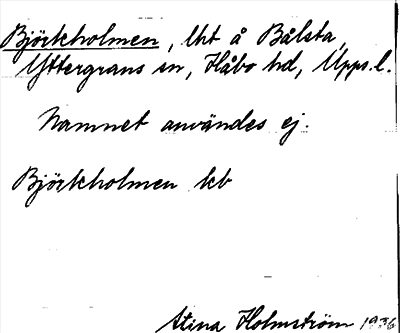 Björkholmen, lht å Bålsta,
Yttergrans sn, Håbo hd, Upps. l.
Namnet användes ej.
Björkholmen kb
Stina Holmström 1936